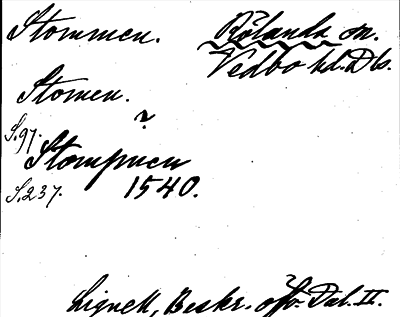 Stommen. Rölanda sn.
Vedbo hd. Dls.
Stomen.
?
S. 97. Stompnen
S. 237. 1540.
Lignell, Beskr. öfv. Dal. II.